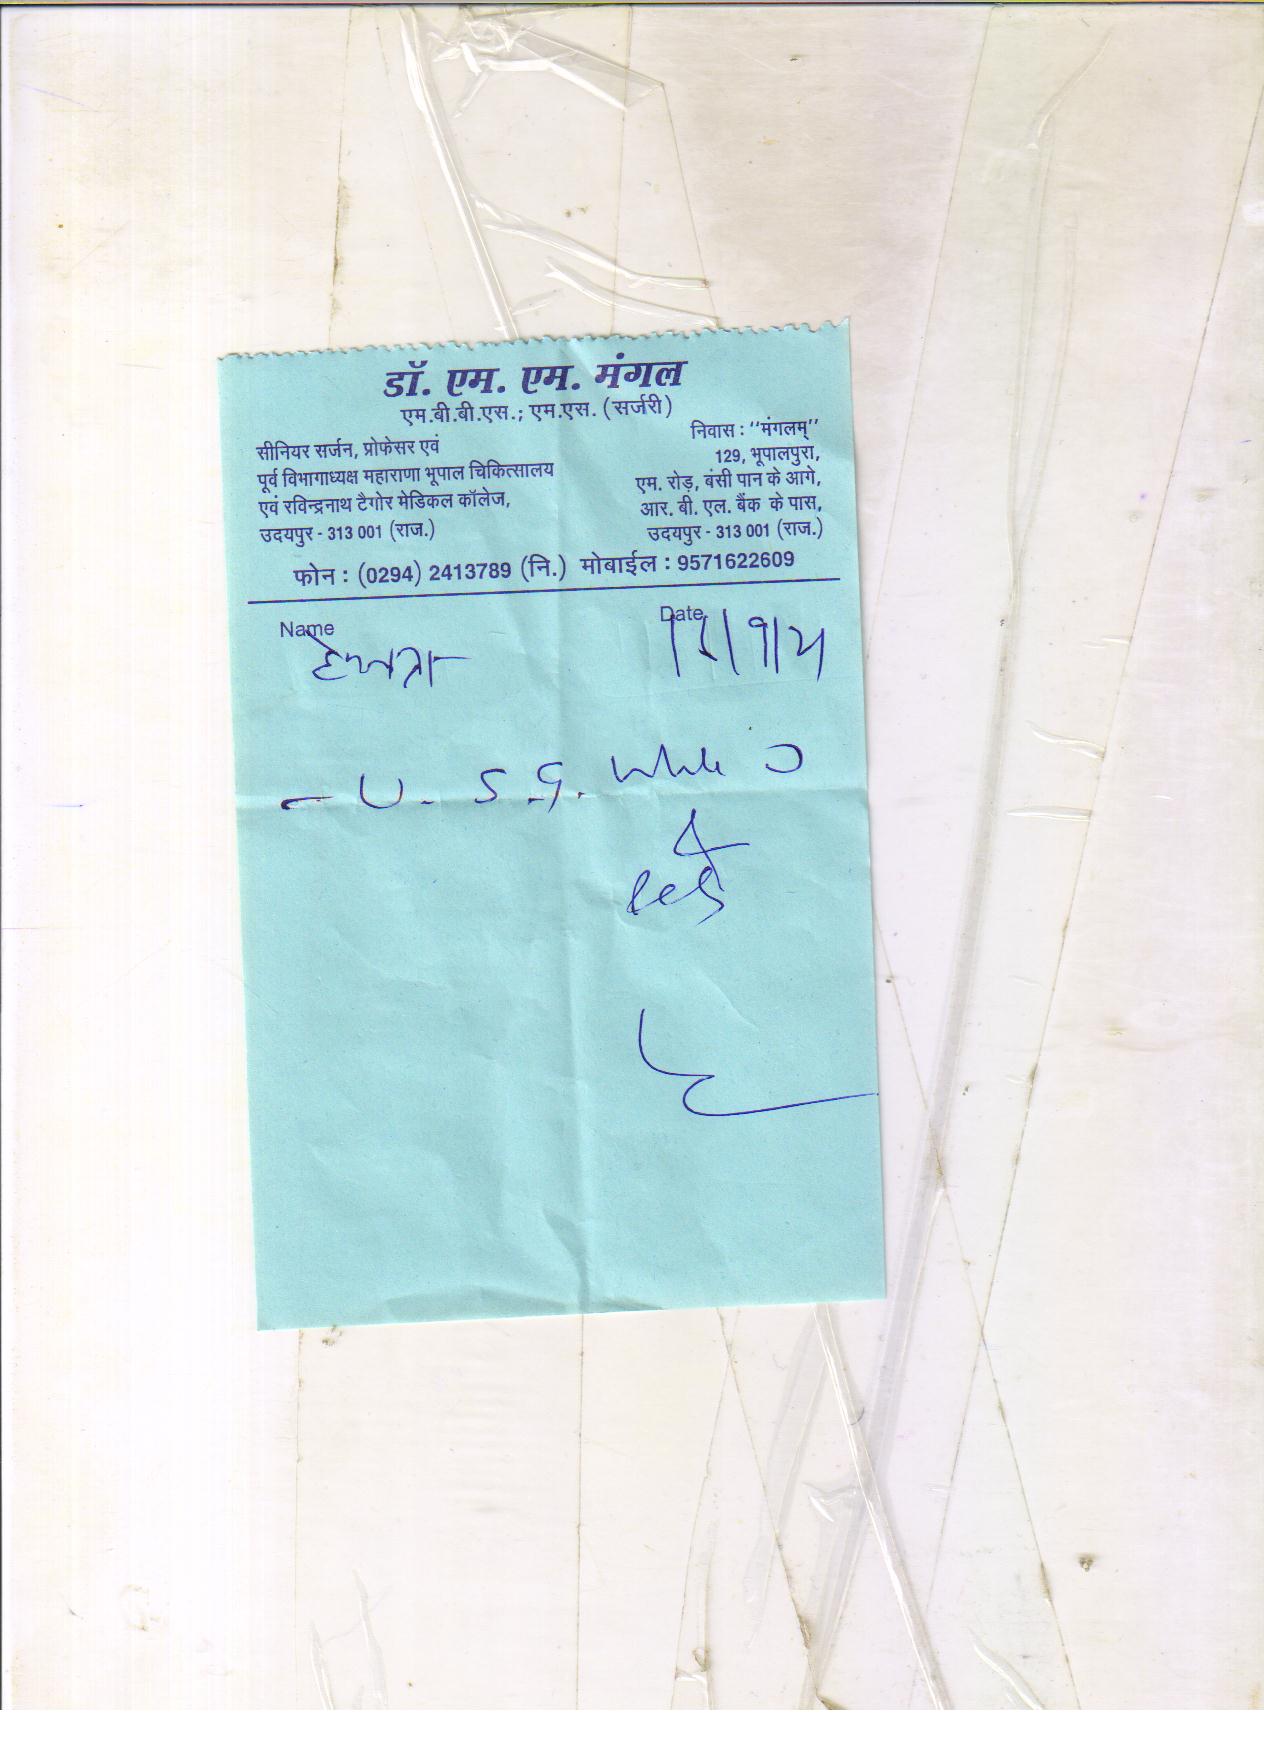 डॉ. एम. एम. मंगल
एम.बी.बी.एस.; एम.एस. (सर्जरी)
सीनियर सर्जन, प्रोफेसर एवं
पूर्व विभागाध्यक्ष महाराणा भूपाल चिकित्सालय
एवं रविन्द्रनाथ टैगोर मेडिकल कॉलेज,
उदयपुर - 313 001 (राज.)
निवास : ''मंगलम्''
129, भूपालपुरा,
एम. रोड़, बंसी पान के आगे,
आर. बी. एल. बैंक के पास,
उदयपुर - 313 001 (राज.)
फोन : (0294) 2413789 (नि.) मोबाईल : 9571622609
Name
Date
- U. S. G. whole